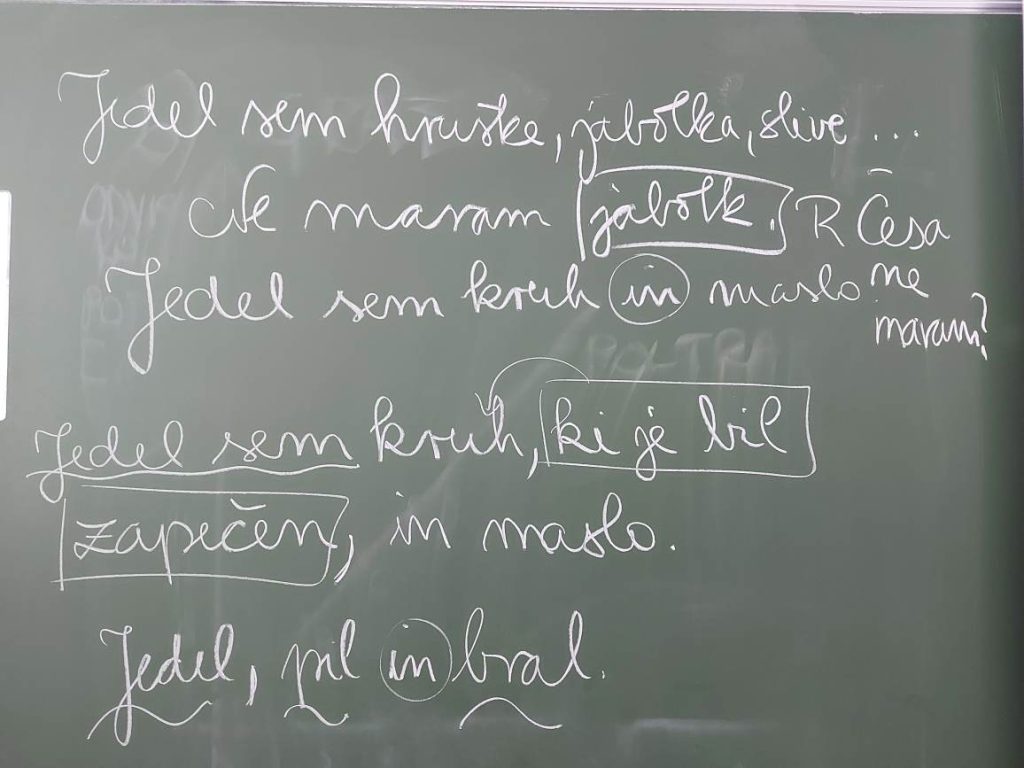 Jedel sem hruške, jabolka, slive ...
Ne maram jabolk. R Česa
ne
maram?
Jedel sem kruh in maslo
Jedel sem kruh, ki je bil
zapečen, in maslo.
Jedel, pil in bral.